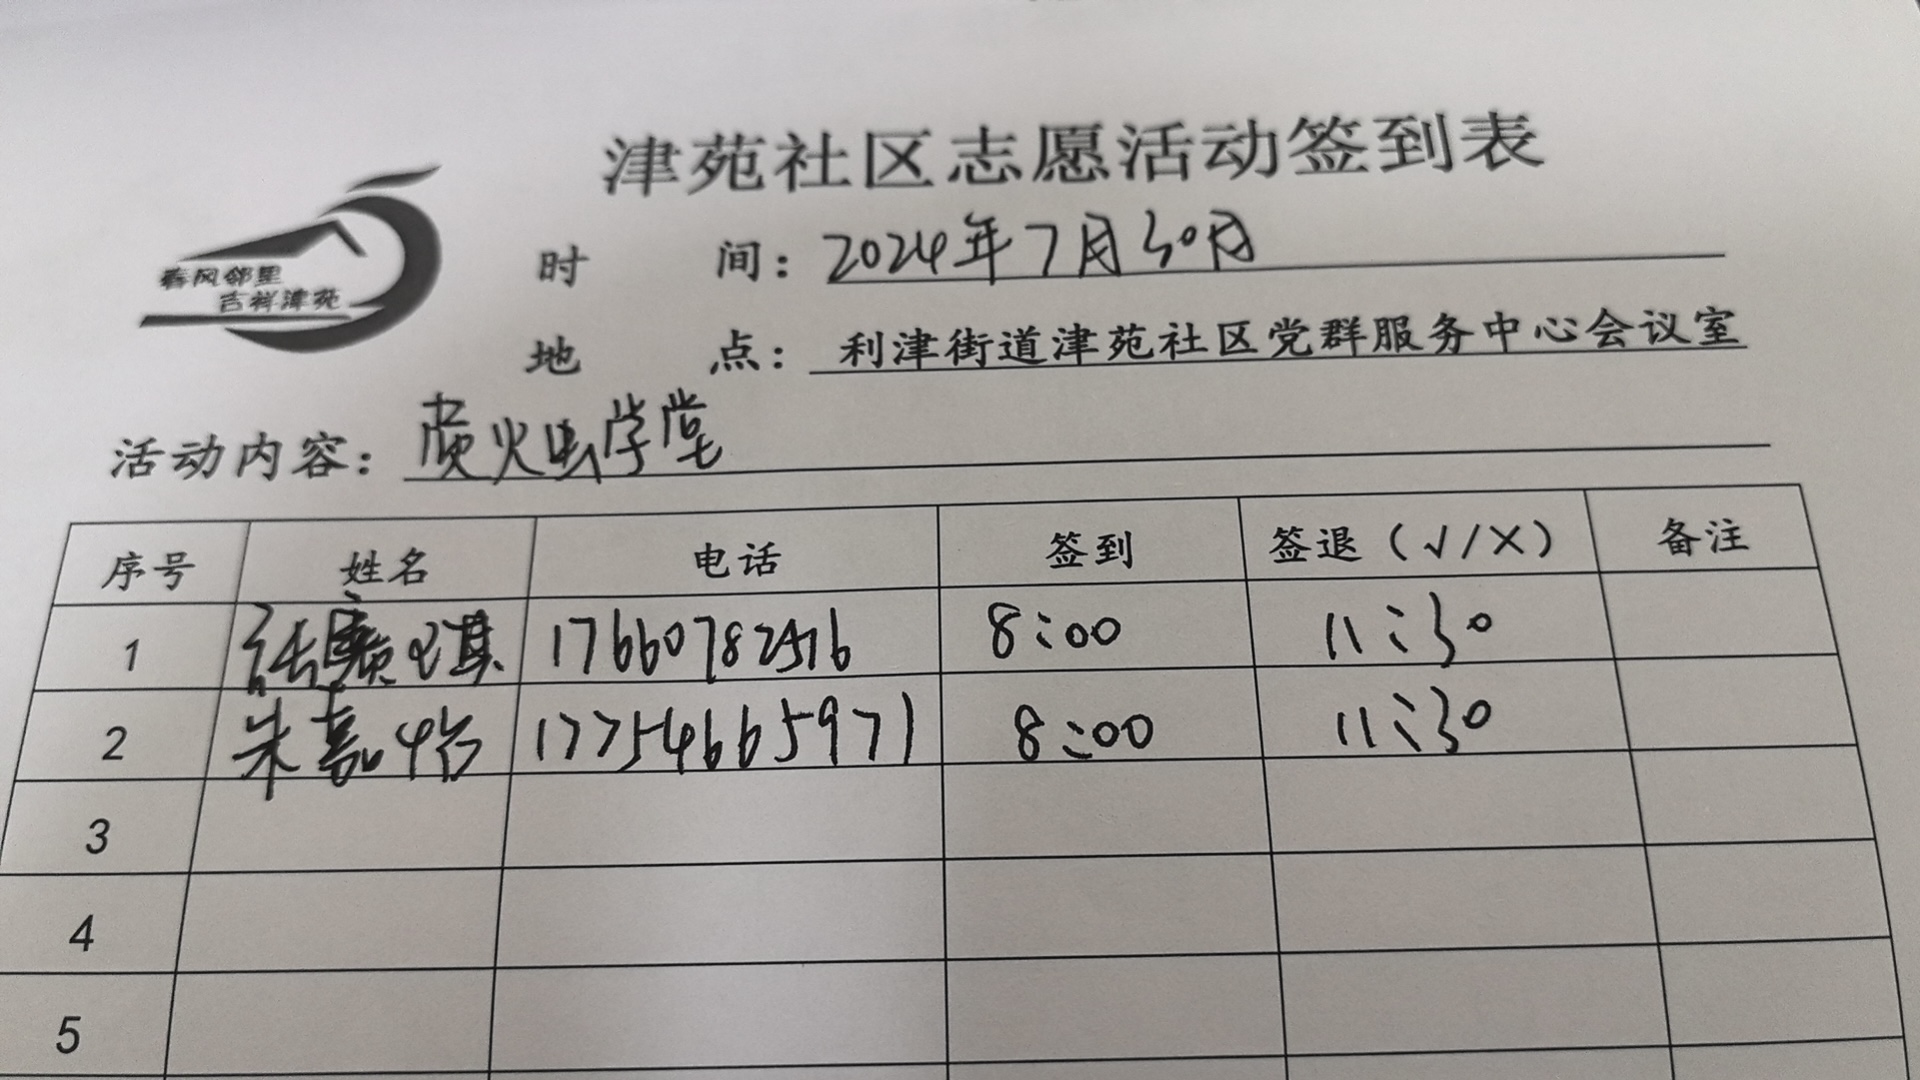 津苑社区志愿活动签到表
春风邻里
吉祥津苑
时 间：2024年7月30日
地 点：利津街道津苑社区党群服务中心会议室
活动内容：萤火虫学堂
序号 姓名 电话 签到 签退（√/×） 备注
1 17660782576 8:00 11:30
2 朱嘉怡 17754665971 8:00 11:30
3
4
5